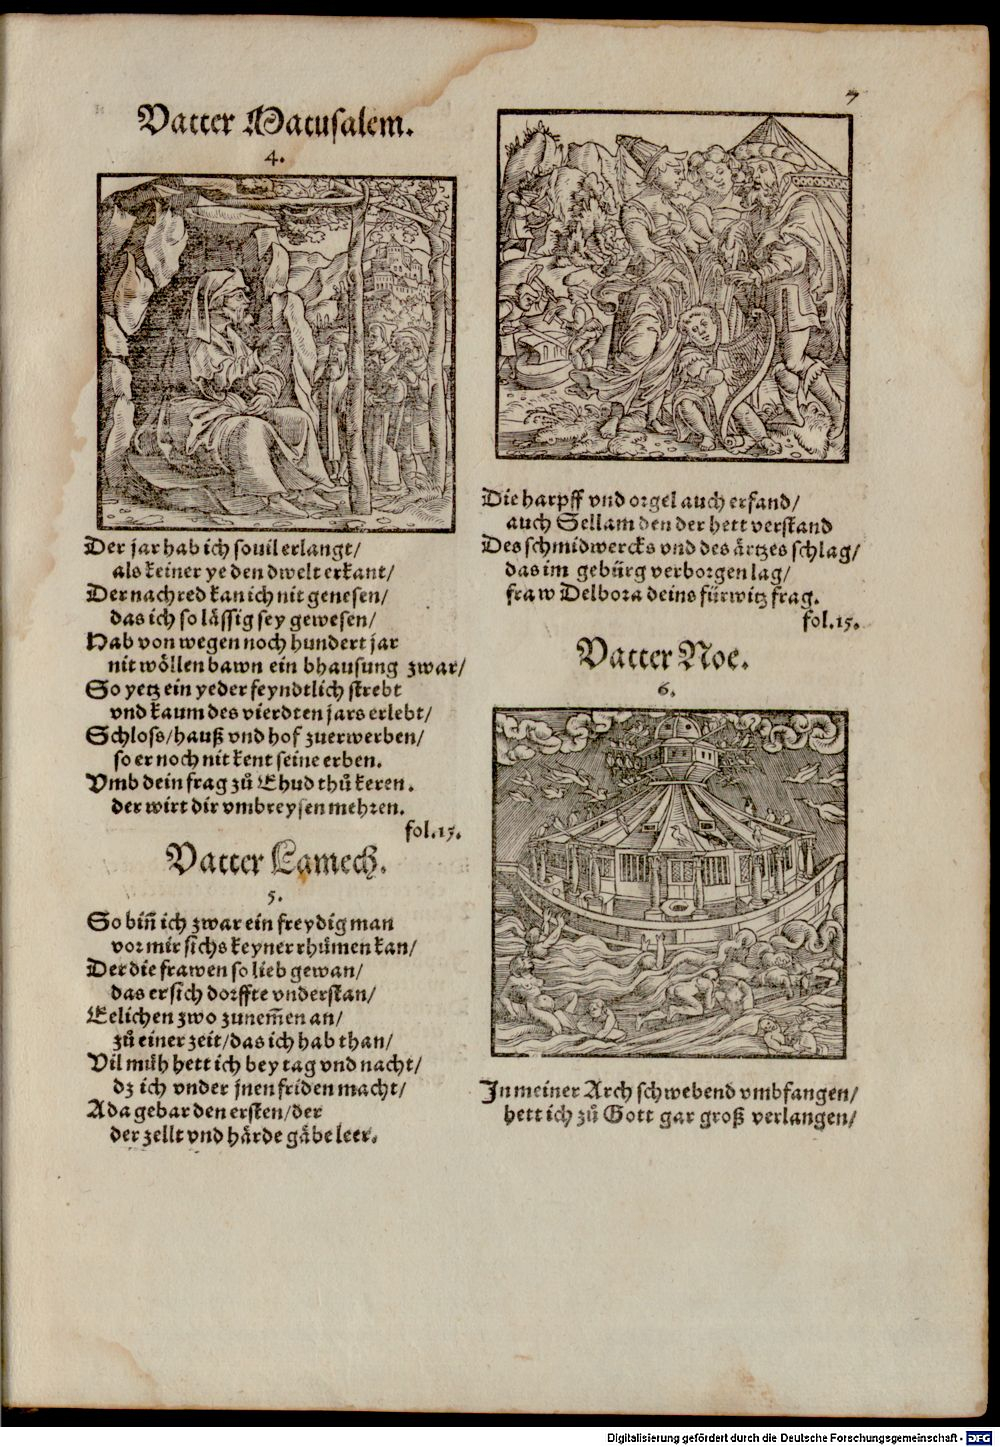 7
Vatter Matusalem.
4.
Der jar hab ich souil erlangt/
als keiner ye den dwelt erkant/
Der nachred kan ich nit genesen/
das ich so lässig sey gewesen/
Hab von wegen noch hundert jar
nit wöllen bawn ein bhausung zwar/
So yetz ein yeder feyndtlich strebt
vnd kaum des vierdten jars erlebt/
Schloss/hauß vnd hof zuerwerben/
so er noch nit kent seine erben.
Vmb dein frag zů Ehud thů keren.
der wirt dir vmbreysen mehren.
fol.15.
Vatter Lamech.
5.
So biñ ich zwar ein freydig man
vor mir sichs keyner rhůmen kan/
Der die frawen so lieb gewan/
das er sich dorffte vnderstan/
Eelichen zwo zunem̃en an/
zů einer zeit/das ich hab than/
Vil můh hett ich bey tag vnd nacht/
dz ich vnder jnen friden macht/
Ada gebar den ersten/der
der zellt vnd härde gäbe leer.
Die harpff vnd orgel auch erfand/
auch Sellam den der hett verstand
Des schmidwercks vnd des ärtzes schlag/
das im gebürg verborgen lag/
fraw Delbora deins fürwitz frag.
fol.15.
Vatter Noe.
6.
In meiner Arch schwebend vmbfangen/
hett ich zů Gott gar groß verlangen/
Digitalisierung gefördert durch die Deutsche Forschungsgemeinschaft - DFG